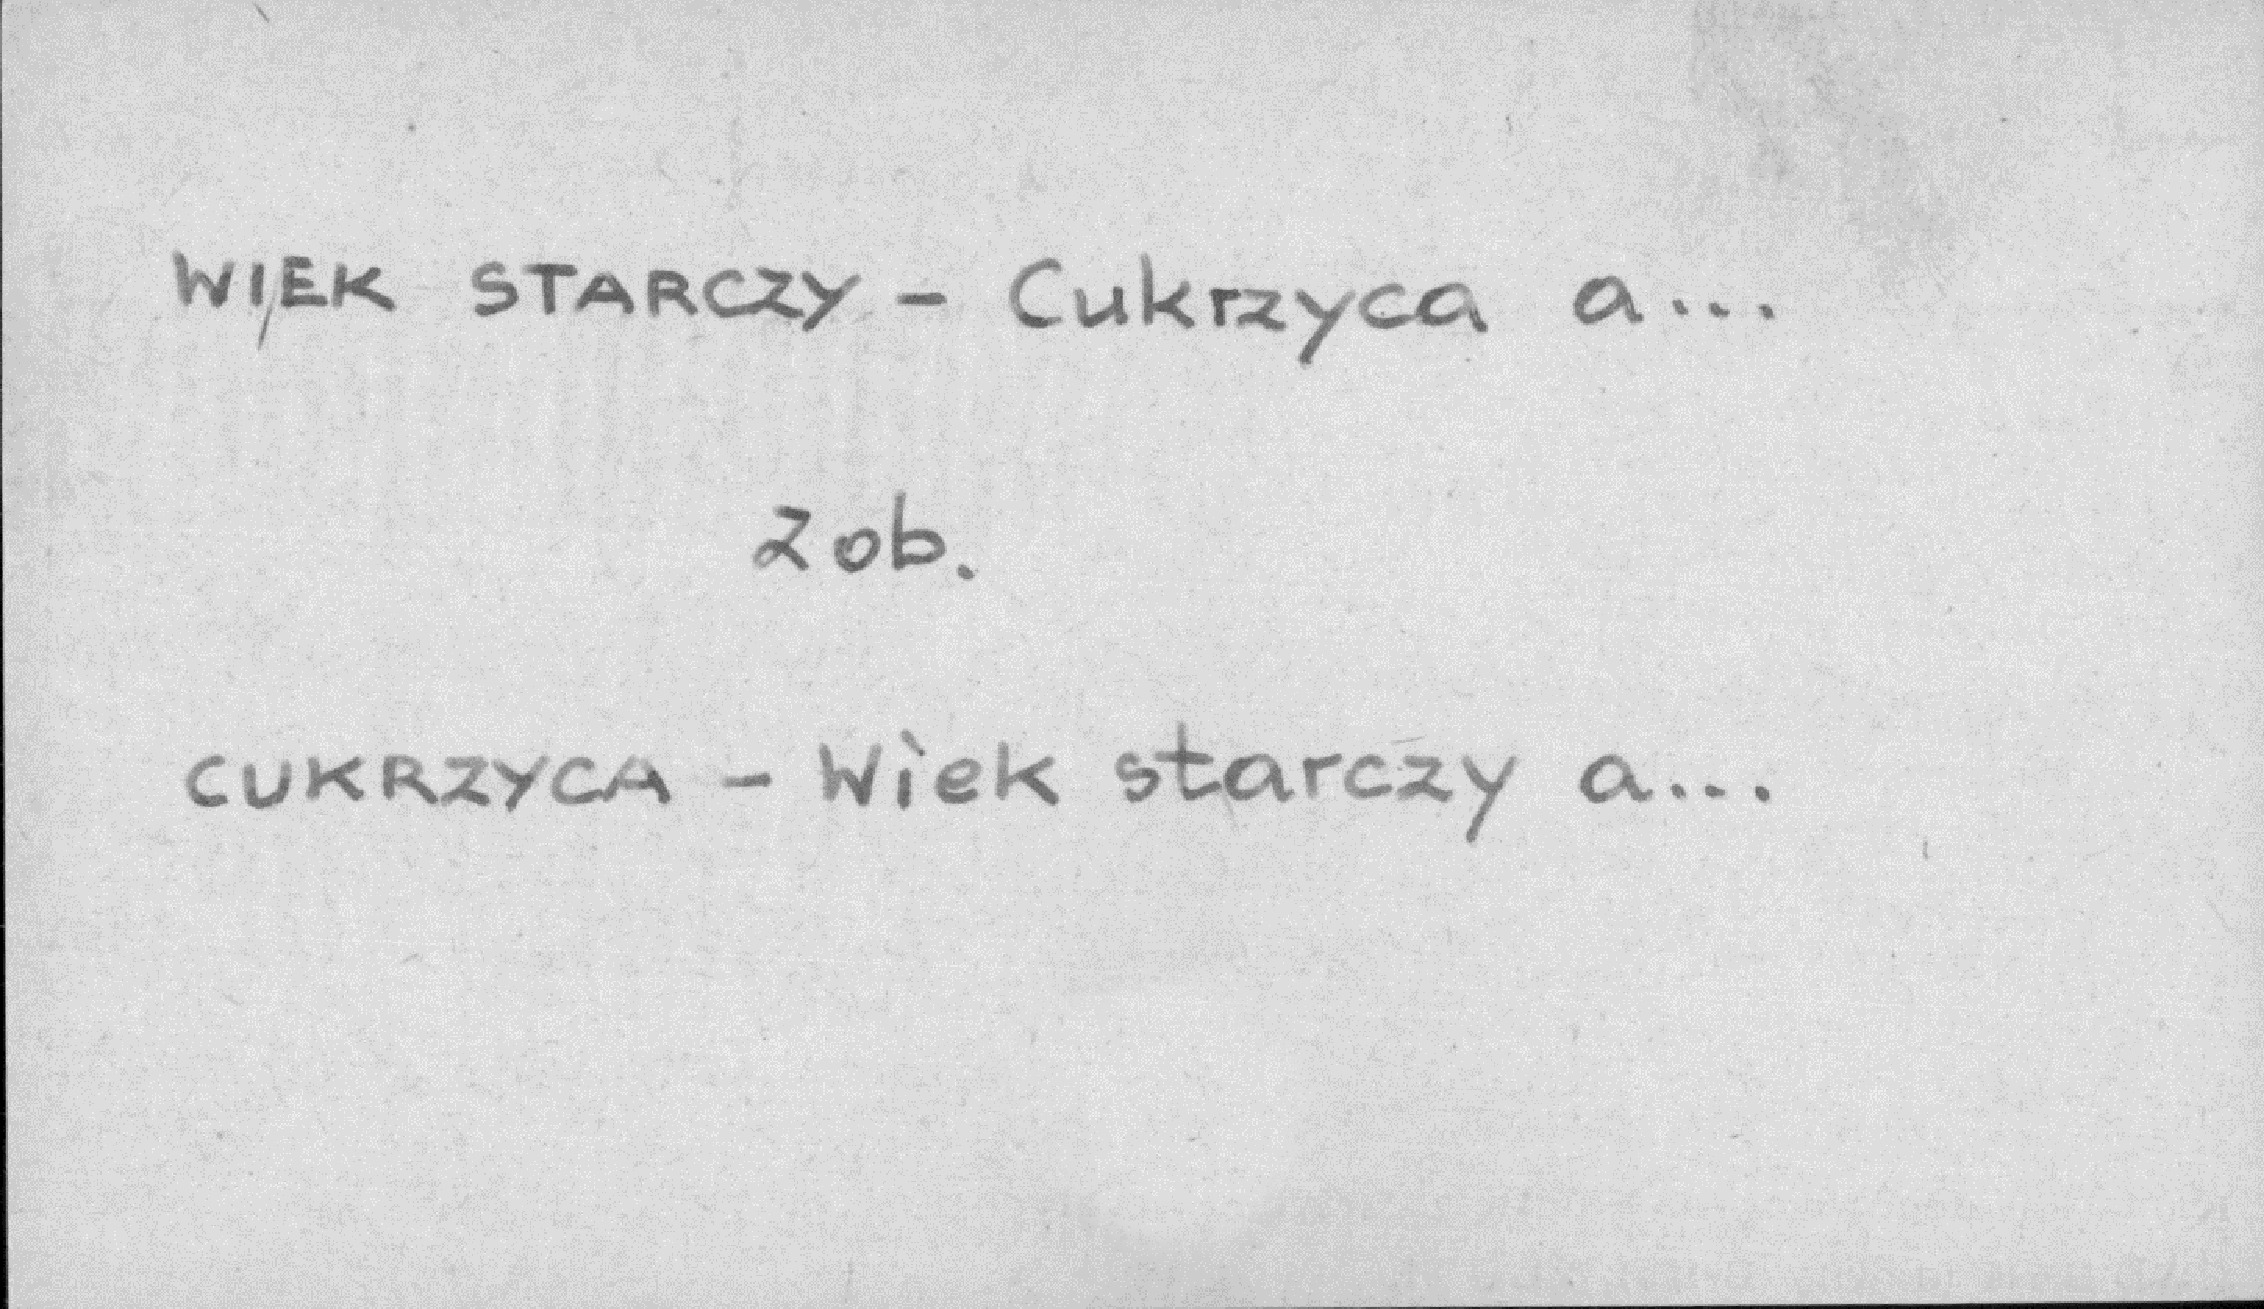 WIEK STARCZY - Cukrzyca a...
zob.
CUKRZYCA - Wiek starczy a...